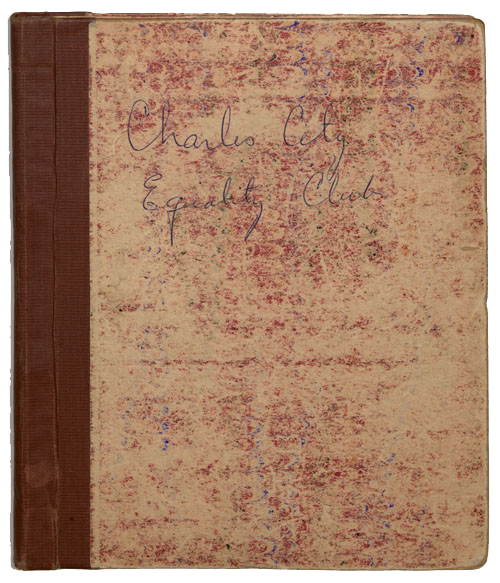 Charles City
Equality Club